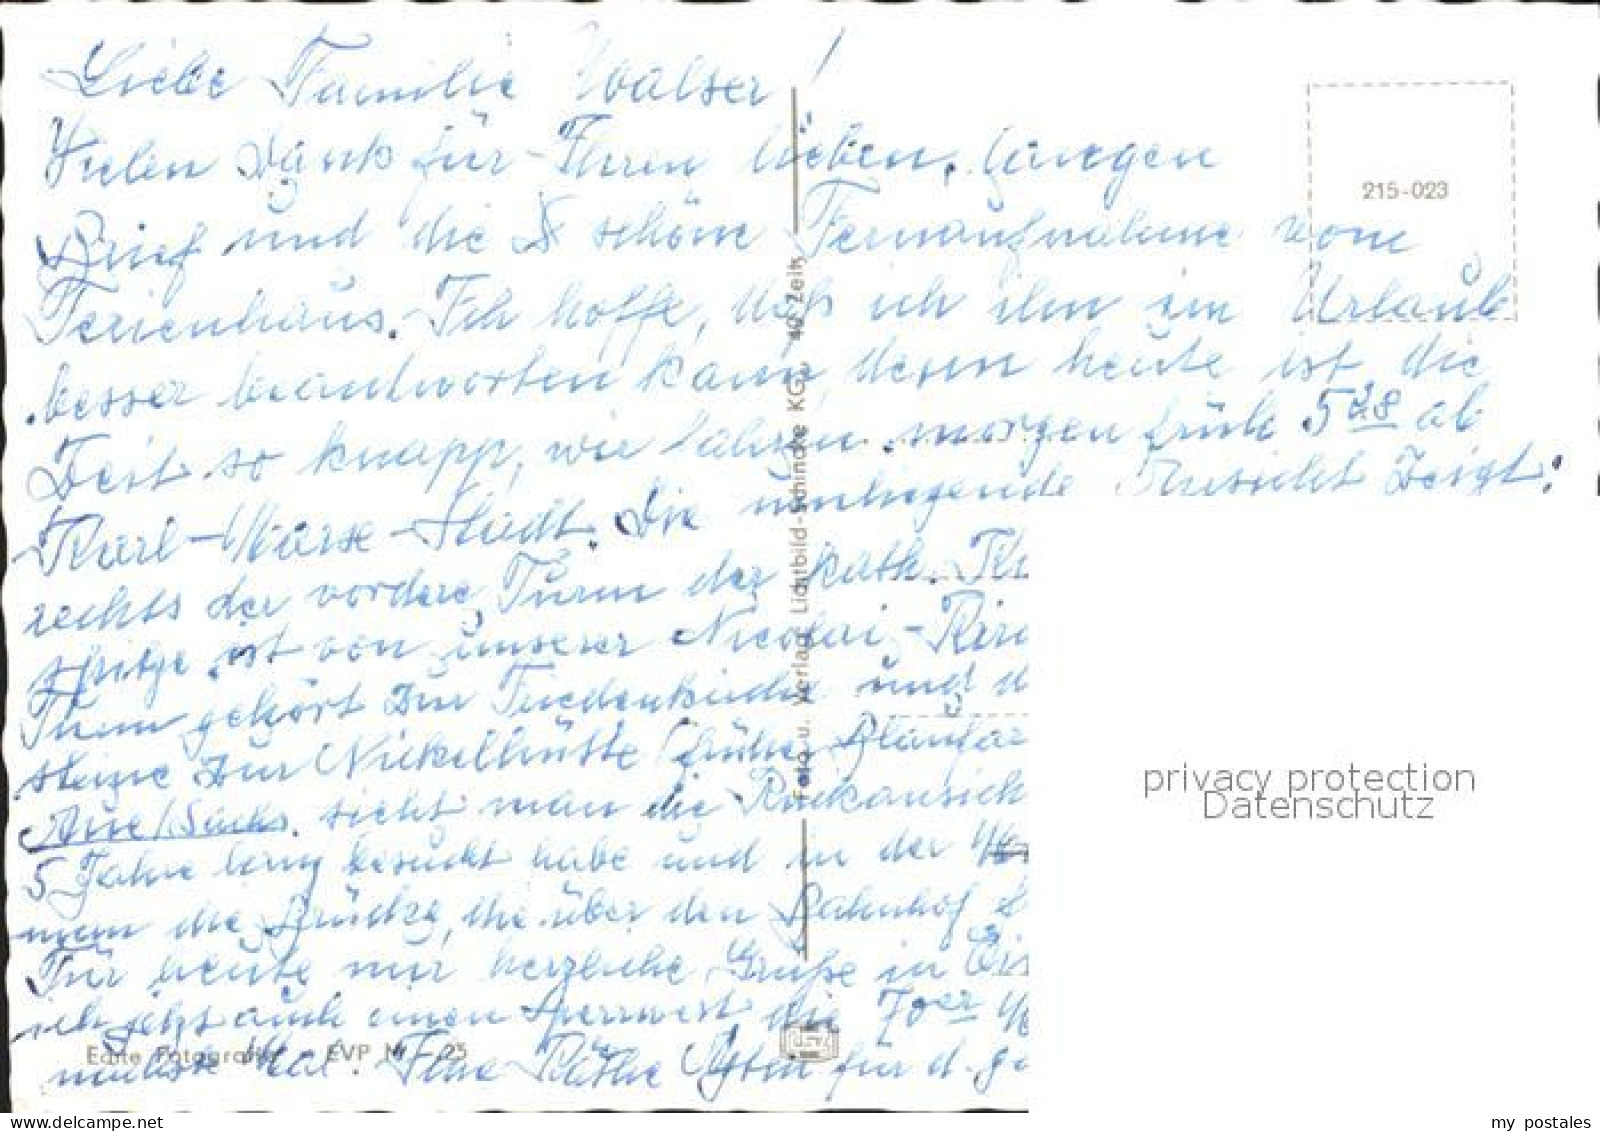 Liebe Familie Walser!
Vielen Dank für Ihren lieben, langen
Brief und die schöne Fernaufnahme vom
Ferienhaus. Ich hoffe, daß ich ihn im Urlaub
besser beantworten kann, denn heute ist die
Zeit so knapp, wir fahren morgen früh 5 28 ab
Karl-Marx-Stadt. Die umliegende Ansicht zeigt:
rechts der vordere Turm der kath.
spitze ist von unserer Nicolai-
Turm gehört zur Friedenskirche und
steine zur Nickelhütte (früher
Aue/Sachs. sieht man die
5 Jahre lang besucht habe und in der
man die Brücke, die über den Bahnhof
Für heute nur herzliche Grüße in
ich jetzt auch einen die 70er
nächste Mal. Ihre Käthe für d.
215-023
Foto u. Verlag Lichtbild-Schincke KG., 49 Zeitz
Echte Fotografie - EVP 25
privacy protection
Datenschutz
my postales
delcampe.net